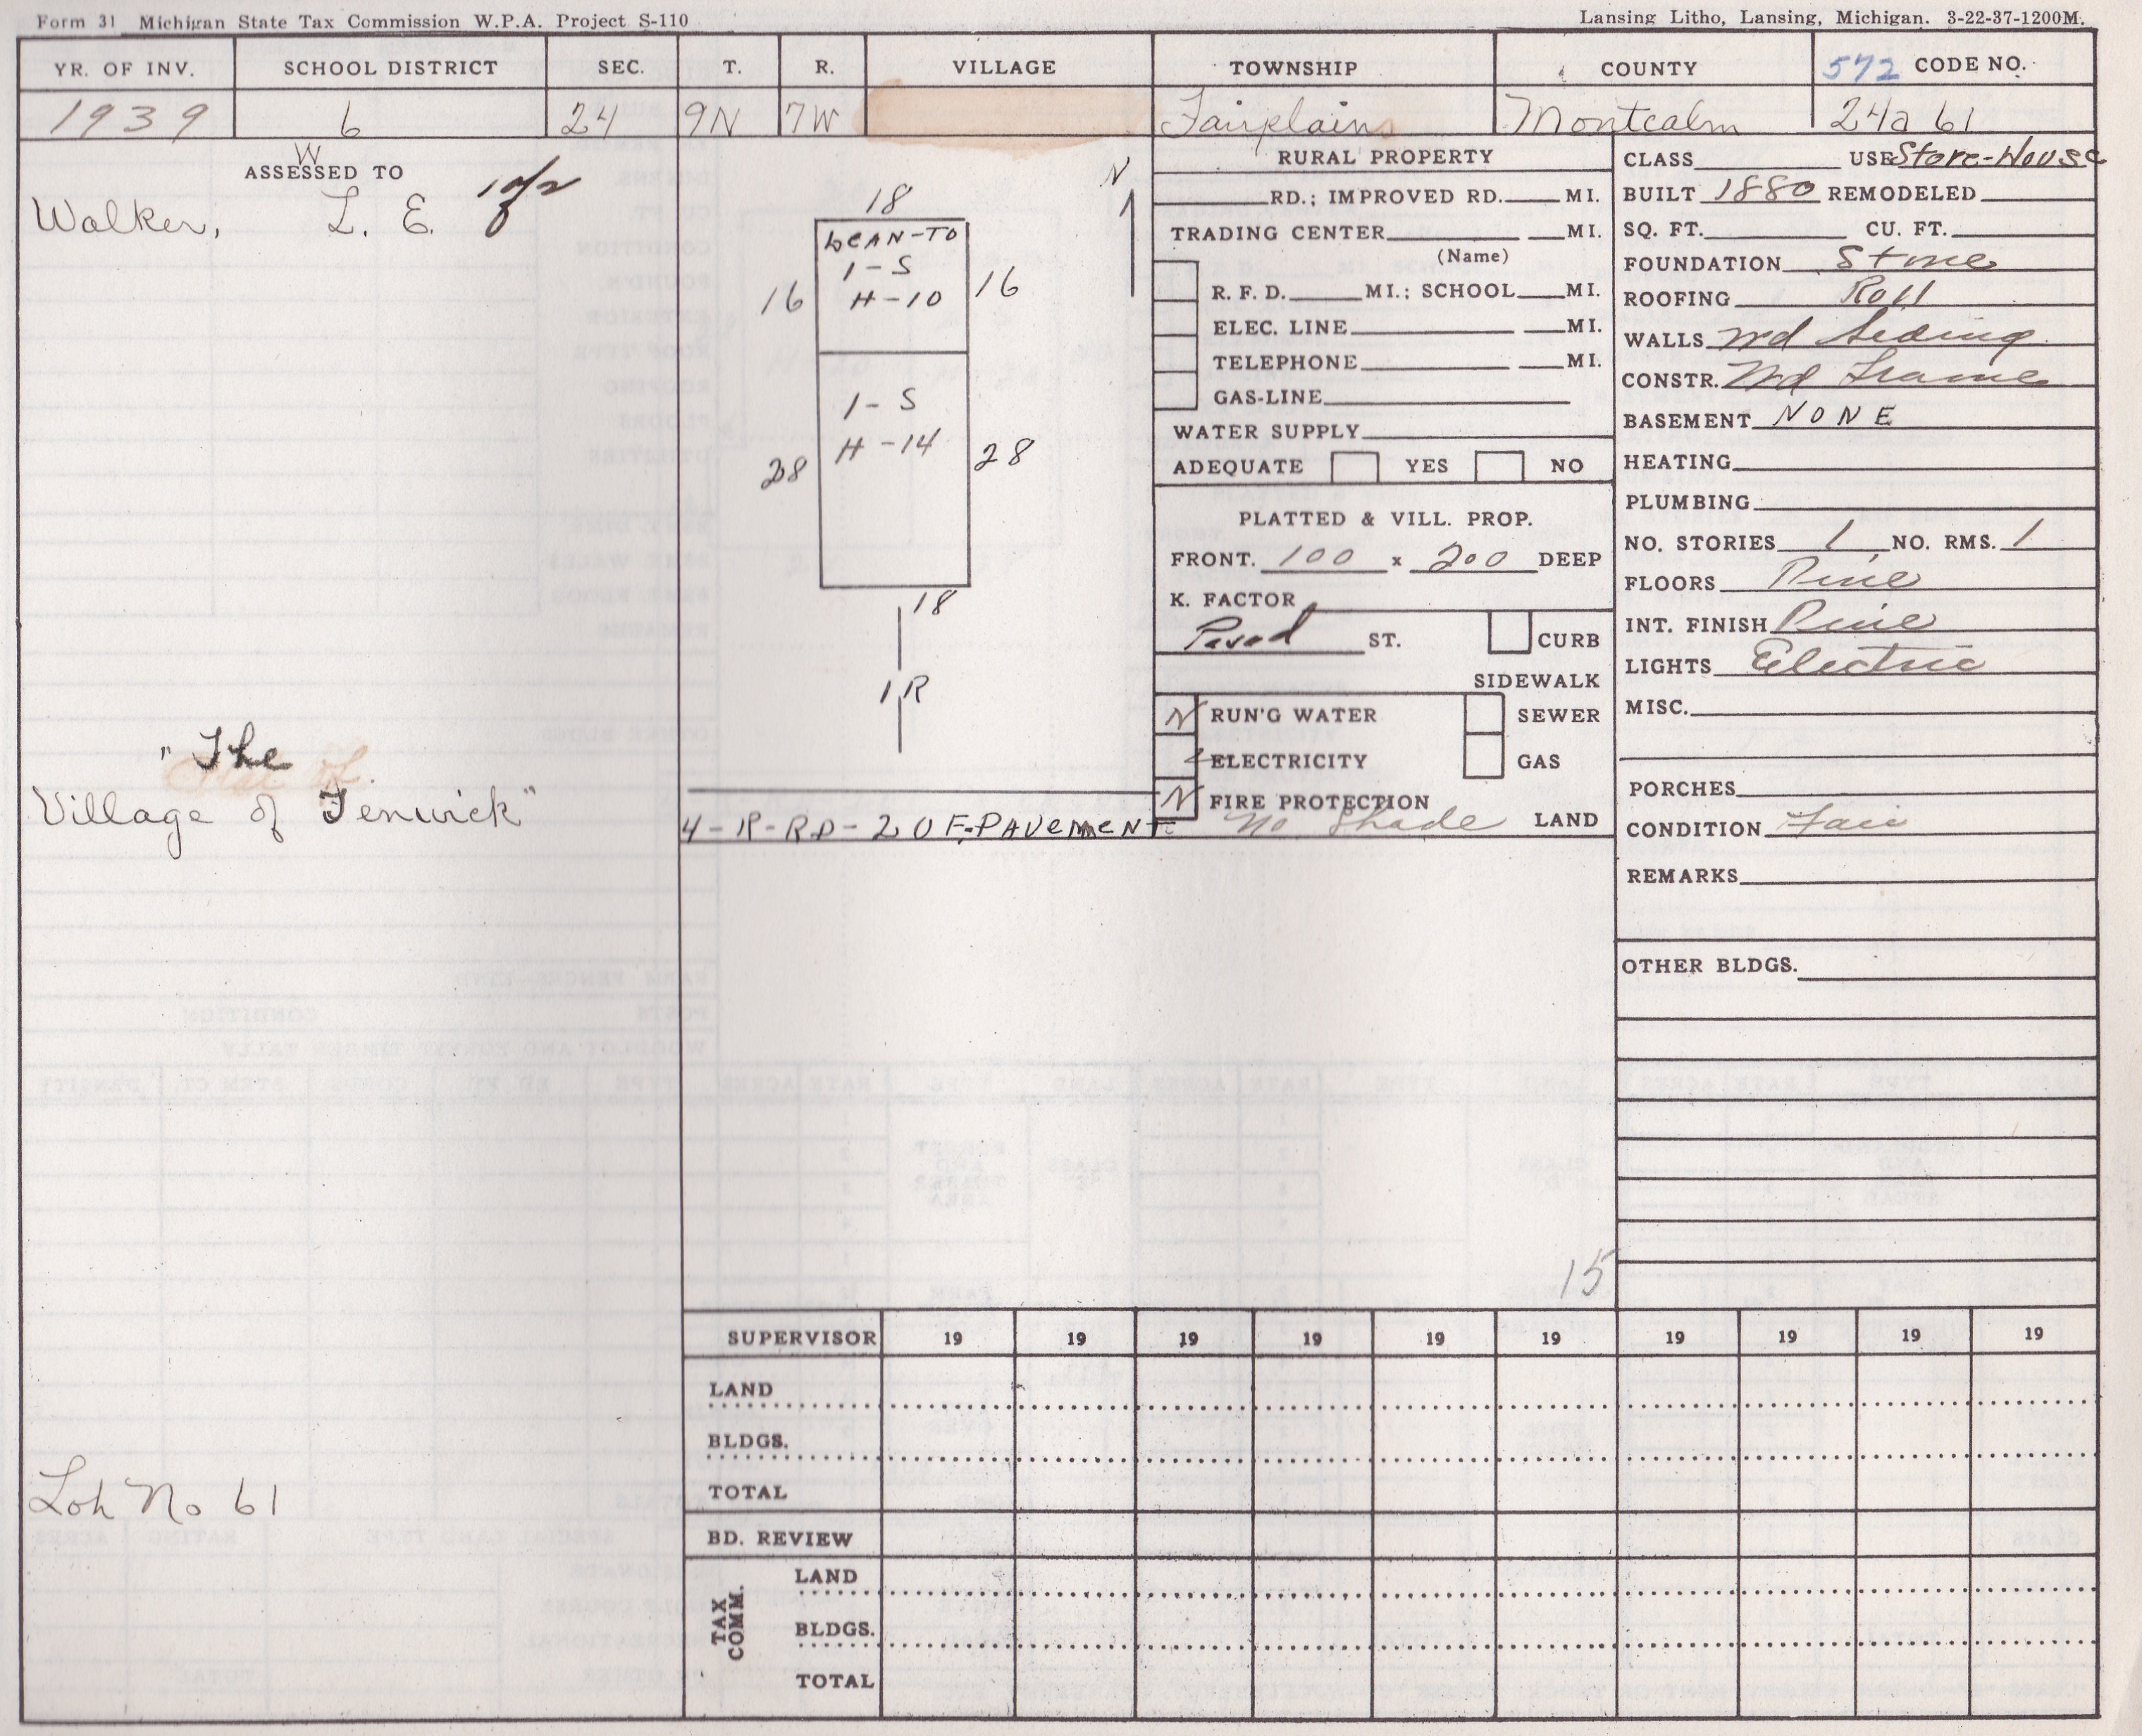 Form 31 Michigan State Tax Commission W.P.A. Project S-110
Lansing Litho, Lansing, Michigan. 3-22-37-1200M.
YR. OF INV. SCHOOL DISTRICT SEC. T. R. VILLAGE TOWNSHIP COUNTY 572 CODE NO.
1939 6 24 9N 7W Fairplains Montcalm 24a 61
W
ASSESSED TO
Walker, L. E. 1 of 2
"The
Village of Fenwick"
Lot No 61
N
18
LEAN-TO
1-S
16 H-10 16
1-S
H-14
28 28
18
1R
4-R-RD-20F-PAVEMENT
RURAL PROPERTY
RD.; IMPROVED RD. MI.
TRADING CENTER MI.
(Name)
R. F. D. MI.; SCHOOL MI.
ELEC. LINE MI.
TELEPHONE MI.
GAS-LINE
WATER SUPPLY
ADEQUATE YES NO
PLATTED & VILL. PROP.
FRONT. 100 x 200 DEEP
K. FACTOR
Paved ST. CURB
SIDEWALK
N RUN'G WATER SEWER
ELECTRICITY GAS
N FIRE PROTECTION
No Shade LAND
CLASS USE Store-House
BUILT 1880 REMODELED
SQ. FT. CU. FT.
FOUNDATION Stone
ROOFING Roll
WALLS Wd Siding
CONSTR. Wd Frame
BASEMENT NONE
HEATING
PLUMBING
NO. STORIES 1 NO. RMS. 1
FLOORS Pine
INT. FINISH Pine
LIGHTS Electric
MISC.
PORCHES
CONDITION Fair
REMARKS
OTHER BLDGS.
15
SUPERVISOR 19 19 19 19 19 19 19 19 19 19
LAND
BLDGS.
TOTAL
BD. REVIEW
TAX COMM.
LAND
BLDGS.
TOTAL